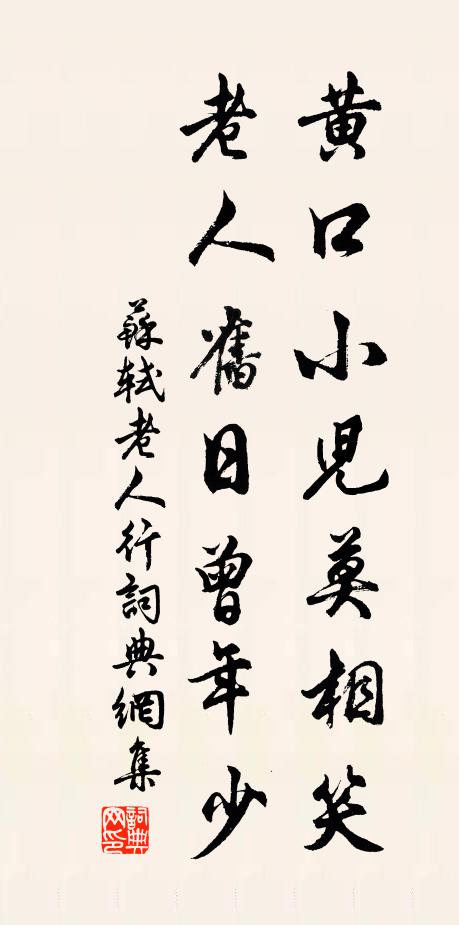 黄口小児莫相笑
老人舊日曾年少
蘇軾老人行詞典網集
詞典網印